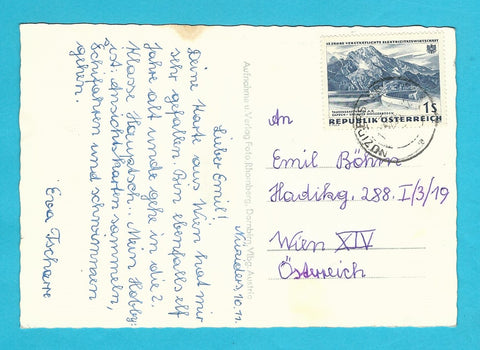 Nüziders, 10.11.
Lieber Emil!
Deine Karte aus Wien hat mir
sehr gefallen. Bin ebenfalls elf
Jahre alt und gehe in die 2.
Klasse Hauptsch. Mein Hobby
ist: Ansichtskarten sammeln,
Schifahren und schwimmen
gehen.
Eva Tscharre
Aufnahme u. Verlag Foto Rhomberg, Dornbirn, Vlbg. Austria
15 JAHRE VERSTAATLICHTE ELEKTRIZITÄTSWIRTSCHAFT
1S
REPUBLIK ÖSTERREICH
An
Emil Böhm
Hadikg. 288. I/3/19
Wien XIV
Österreich